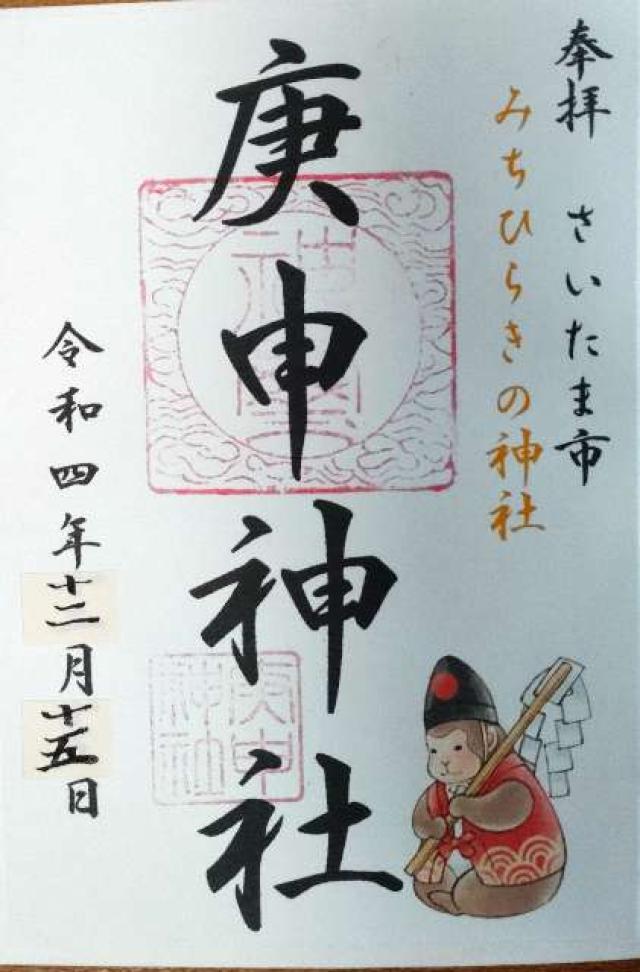 奉拝 さいたま市
みちひらきの神社
庚申神社
令和四年十二月十五日
庚申
神社